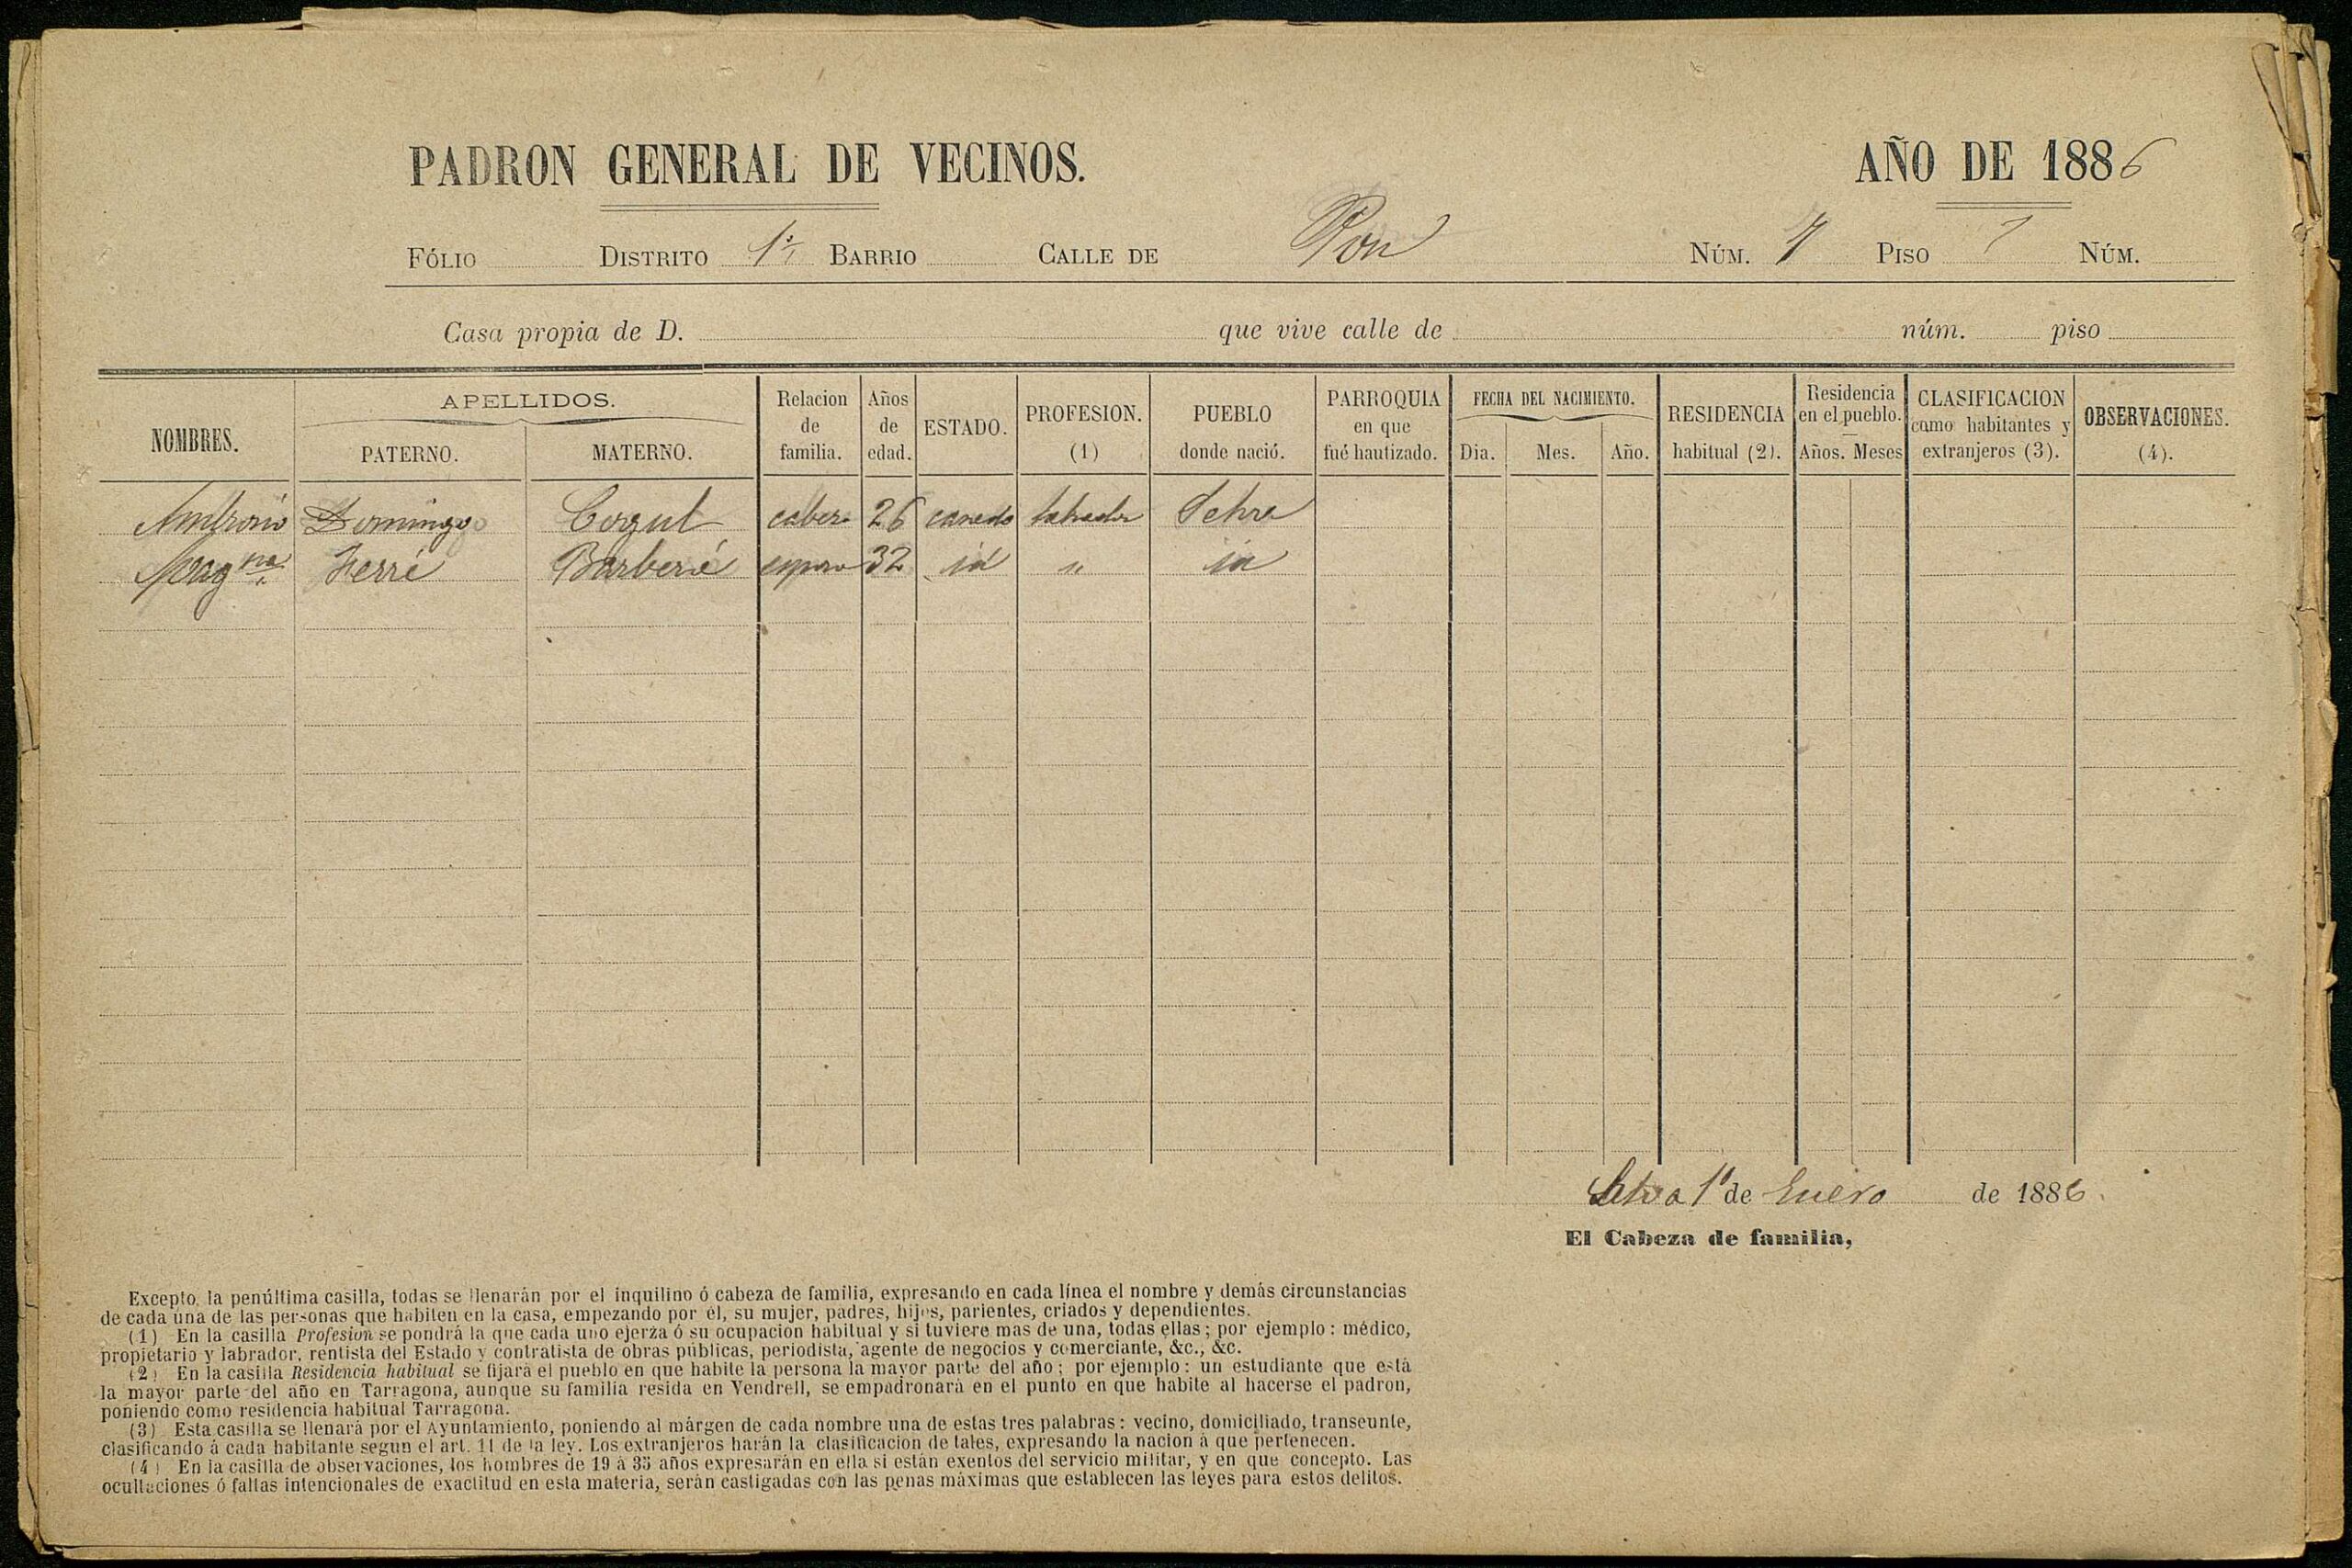 PADRON GENERAL DE VECINOS. AÑO DE 1886
FÓLIO DISTRITO 1º BARRIO CALLE DE Pou NÚM. 7 PISO NÚM.
Casa propia de D. que vive calle de núm. piso
NOMBRES. APELLIDOS. PATERNO. MATERNO. Relacion de familia. Años de edad. ESTADO. PROFESION. (1) PUEBLO donde nació. PARROQUIA en que fué bautizado. FECHA DEL NACIMIENTO. Dia. Mes. Año. RESIDENCIA habitual (2). Residencia en el pueblo. Años. Meses CLASIFICACION como habitantes y extranjeros (3). OBSERVACIONES. (4).
Ambrosio Domingo Cogul cabeza 26 casado labrador Selva
Magna Ferré Barberá esposa 32 id " id
Selva 1º de Enero de 1886.
El Cabeza de familia,
Excepto la penúltima casilla, todas se llenarán por el inquilino ó cabeza de familia, expresando en cada línea el nombre y demás circunstancias
de cada una de las personas que habiten en la casa, empezando por él, su mujer, padres, hijos, parientes, criados y dependientes.
(1) En la casilla Profesion se pondrá la que cada uno ejerza ó su ocupacion habitual y si tuviere mas de una, todas ellas; por ejemplo: médico,
propietario y labrador, rentista del Estado y contratista de obras públicas, periodista, agente de negocios y comerciante, &c., &c.
(2) En la casilla Residencia habitual se fijará el pueblo en que habite la persona la mayor parte del año; por ejemplo: un estudiante que está
la mayor parte del año en Tarragona, aunque su familia resida en Vendrell, se empadronará en el punto en que habite al hacerse el padron,
poniendo como residencia habitual Tarragona.
(3) Esta casilla se llenará por el Ayuntamiento, poniendo al márgen de cada nombre una de estas tres palabras: vecino, domiciliado, transeunte,
clasificando á cada habitante segun el art. 11 de la ley. Los extranjeros harán la clasificacion de tales, expresando la nacion á que pertenecen.
(4) En la casilla de observaciones, los hombres de 19 á 35 años expresarán en ella si están exentos del servicio militar, y en que concepto. Las
ocultaciones ó faltas intencionales de exactitud en esta materia, serán castigadas con las penas máximas que establecen las leyes para estos delitos.